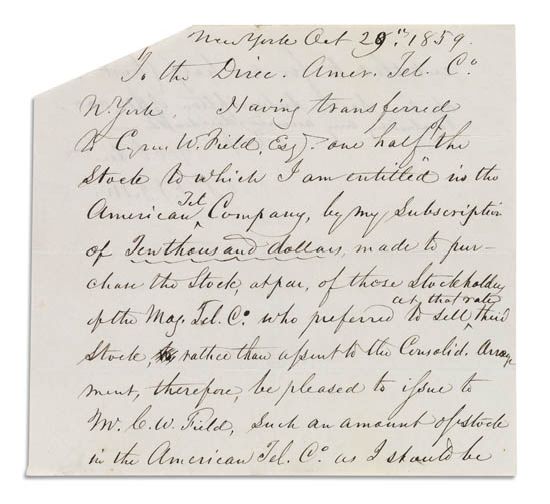 New York Oct 29th 1859.
To the Direc. Amer. Tel. Co
N. York. Having transferred
to Cyrus W. Field, Esqr. one half the
Stock to which I am entitled in the
American Tel. Company, by my Subscription
of Ten thousand dollars, made to pur-
chase the Stock, at par, of those Stockholders
of the Mag. Tel. Co. who preferred to sell at that rate their
Stock, rather than assent to the Consolid. Arrange
ment, therefore, be pleased to issue to
Mr. C. W. Field, Such an amount of stock
in the American Tel. Co as I should be